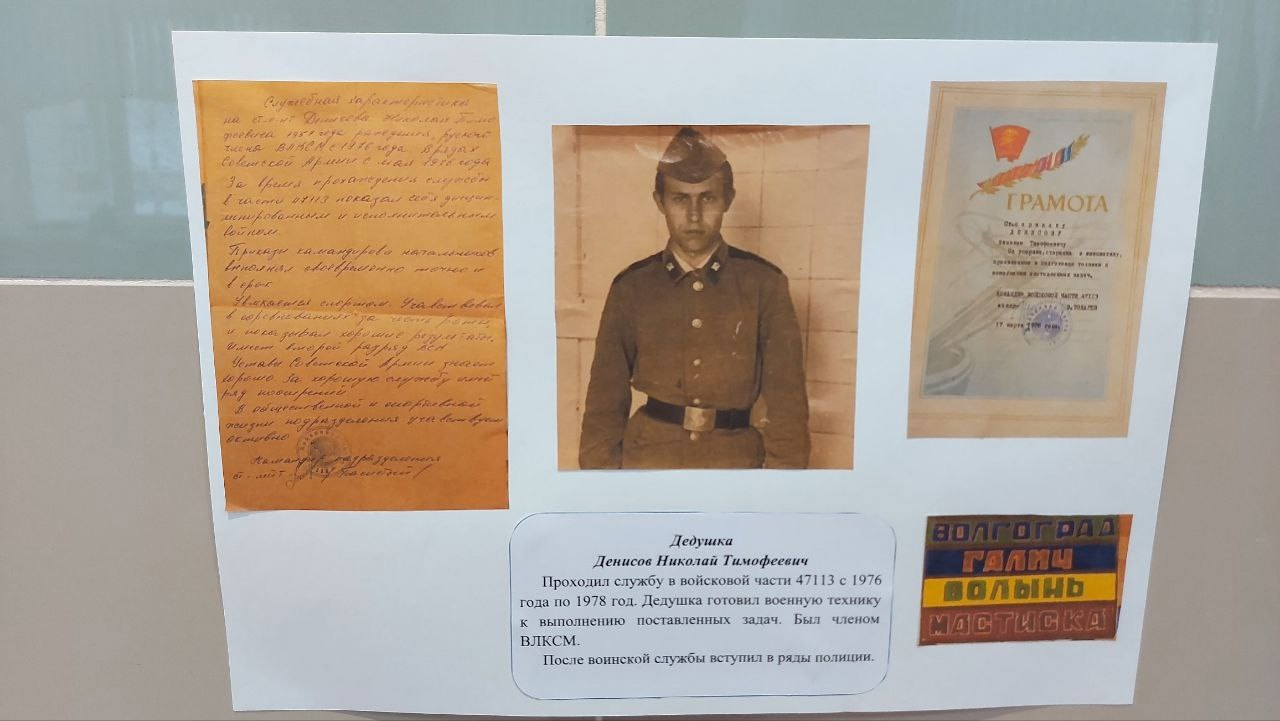 Служебная характеристика
на ст.с-нт Денисова Николая Тимо
феевича 1957 года рождения, руский
члена ВЛКСМ с 1976 года. В рядах
Советской Армии с мая 1976 года
За время прохождения службы
в части 47113 показал себя дисцип-
линированным и исполнительным
войном.
Приказы командиров и начальников
выполнял своевременно точно и
в срок
Увлекается спортом. Участвовал
в соревнованиях за честь роты
и показывал хорошие результаты.
Имеет второй разряд ВСК
Уставы Советской Армии знает
хорошо За хорошую службу имел
ряд поощрений
В общественной и спортивной
жизни подразделения участвует
активно
Командир подразделения
ст. л-нт
ГРАМОТА
ДЕНИСОВУ
Николаю Тимофеевичу
За усердие, старание и инициативу,
проявленные в подготовке техники к
выполнению поставленных задач.
КОМАНДИР ВОЙСКОВОЙ ЧАСТИ 47113
17 марта 1978 года.
Дедушка
Денисов Николай Тимофеевич
Проходил службу в войсковой части 47113 с 1976
года по 1978 год. Дедушка готовил военную технику
к выполнению поставленных задач. Был членом
ВЛКСМ.
После воинской службы вступил в ряды полиции.
ВОЛГОГРАД
ГАЛИЧ
ВОЛЫНЬ
МАСТИСКА